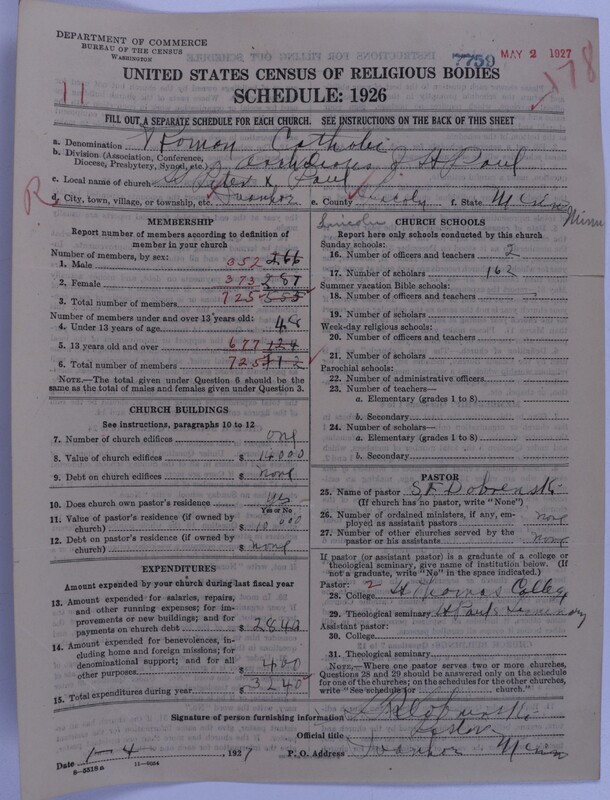 DEPARTMENT OF COMMERCE
BUREAU OF THE CENSUS
WASHINGTON
7759
MAY 2 1927
178
UNITED STATES CENSUS OF RELIGIOUS BODIES
SCHEDULE: 1926
11
FILL OUT A SEPARATE SCHEDULE FOR EACH CHURCH. SEE INSTRUCTIONS ON THE BACK OF THIS SHEET
a. Denomination Roman Catholic
b. Division (Association, Conference, Diocese, Presbytery, Synod, etc.) Archdiocese of St Paul
c. Local name of church Peter & Paul
R
d. City, town, village, or township, etc. Ivanhoe e. County Lincoln f. State Minn
Lincoln Minn
MEMBERSHIP
Report number of members according to definition of member in your church
Number of members, by sex:
1. Male 352 266
2. Female 373 287
3. Total number of members 725
Number of members under and over 13 years old:
4. Under 13 years of age 48
5. 13 years old and over 677
6. Total number of members 725
NOTE.—The total given under Question 6 should be the same as the total of males and females given under Question 3.
CHURCH BUILDINGS
See instructions, paragraphs 10 to 12
7. Number of church edifices one
8. Value of church edifices $ 14000
9. Debt on church edifices $ none
10. Does church own pastor's residence? yes
Yes or No
11. Value of pastor's residence (if owned by church) $ 10 000
12. Debt on pastor's residence (if owned by church) $ none
EXPENDITURES
Amount expended by your church during last fiscal year
13. Amount expended for salaries, repairs, and other running expenses; for improvements or new buildings; and for payments on church debt $ 2840
14. Amount expended for benevolences, including home and foreign missions; for denominational support; and for all other purposes $ 400
15. Total expenditures during year $ 3240
CHURCH SCHOOLS
Report here only schools conducted by this church
Sunday schools:
16. Number of officers and teachers 2
17. Number of scholars 162
Summer vacation Bible schools:
18. Number of officers and teachers
19. Number of scholars
Week-day religious schools:
20. Number of officers and teachers
21. Number of scholars
Parochial schools:
22. Number of administrative officers
23. Number of teachers—
a. Elementary (grades 1 to 8)
b. Secondary
24. Number of scholars—
a. Elementary (grades 1 to 8)
b. Secondary
PASTOR
25. Name of pastor
(If church has no pastor, write "None")
26. Number of ordained ministers, if any, employed as assistant pastors none
27. Number of other churches served by the pastor or his assistants None
If pastor (or assistant pastor) is a graduate of a college or theological seminary, give name of institution below. (If not a graduate, write "No" in the space indicated.)
Pastor: 2
28. College St Thomas College
29. Theological seminary St Pauls Seminary
Assistant pastor:
30. College
31. Theological seminary
NOTE.—Where one pastor serves two or more churches, Questions 28 and 29 should be answered only on the schedule for one of the churches; on the schedules for the other churches, write "See schedule for church."
Signature of person furnishing information
Official title Pastor
Date 1-4, 1927 P. O. Address Ivanhoe Minn
8-5518a 11-9064